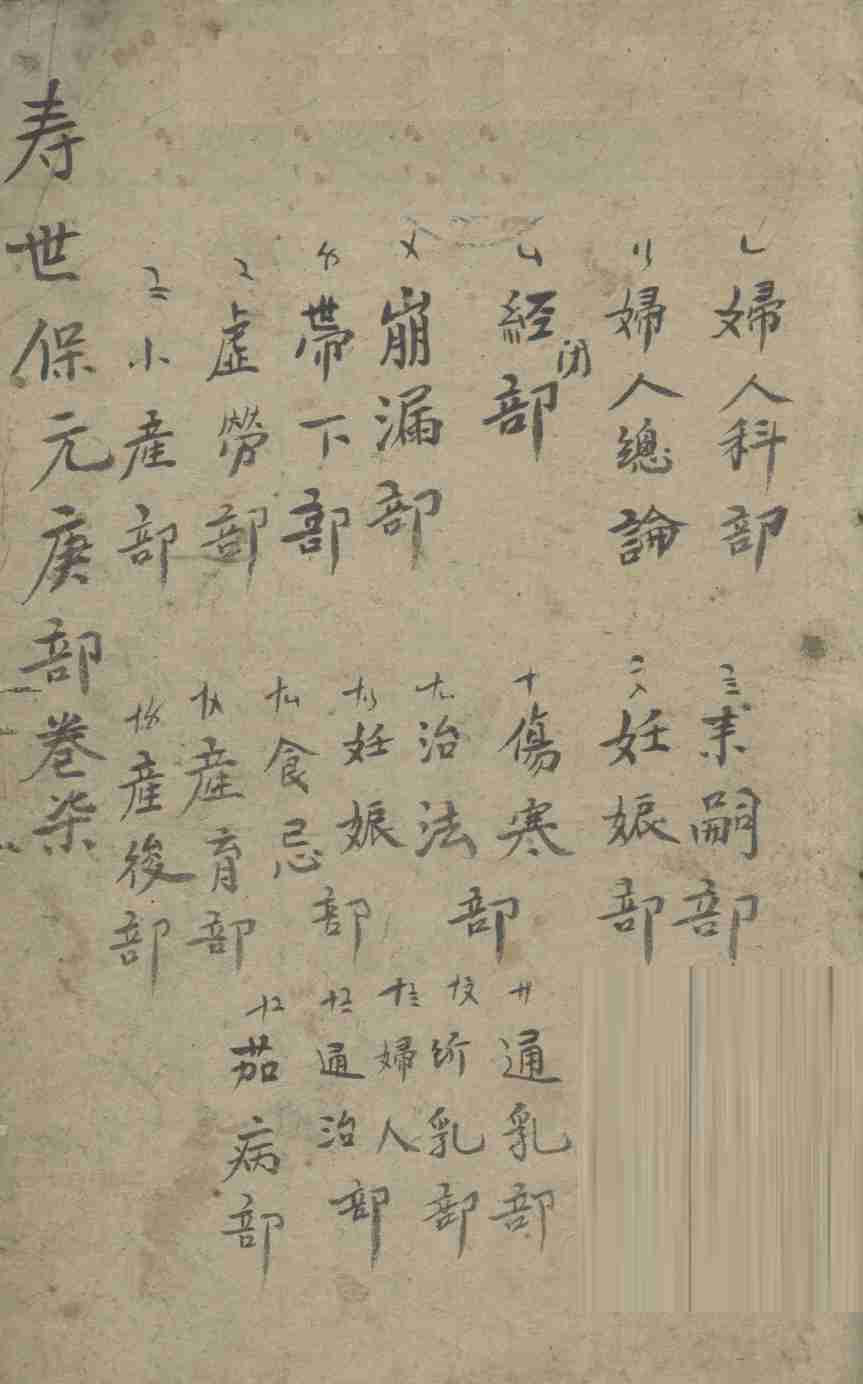 婦人科部
婦人總論
經閉部
崩漏部
帶下部
虛勞部
小產部
求嗣部
妊娠部
十 傷寒
治法部
妊娠
食忌部
產育部
產後部
廿 通乳部
乳部
婦人
通治部
茄病部
寿世保元庚部卷柒